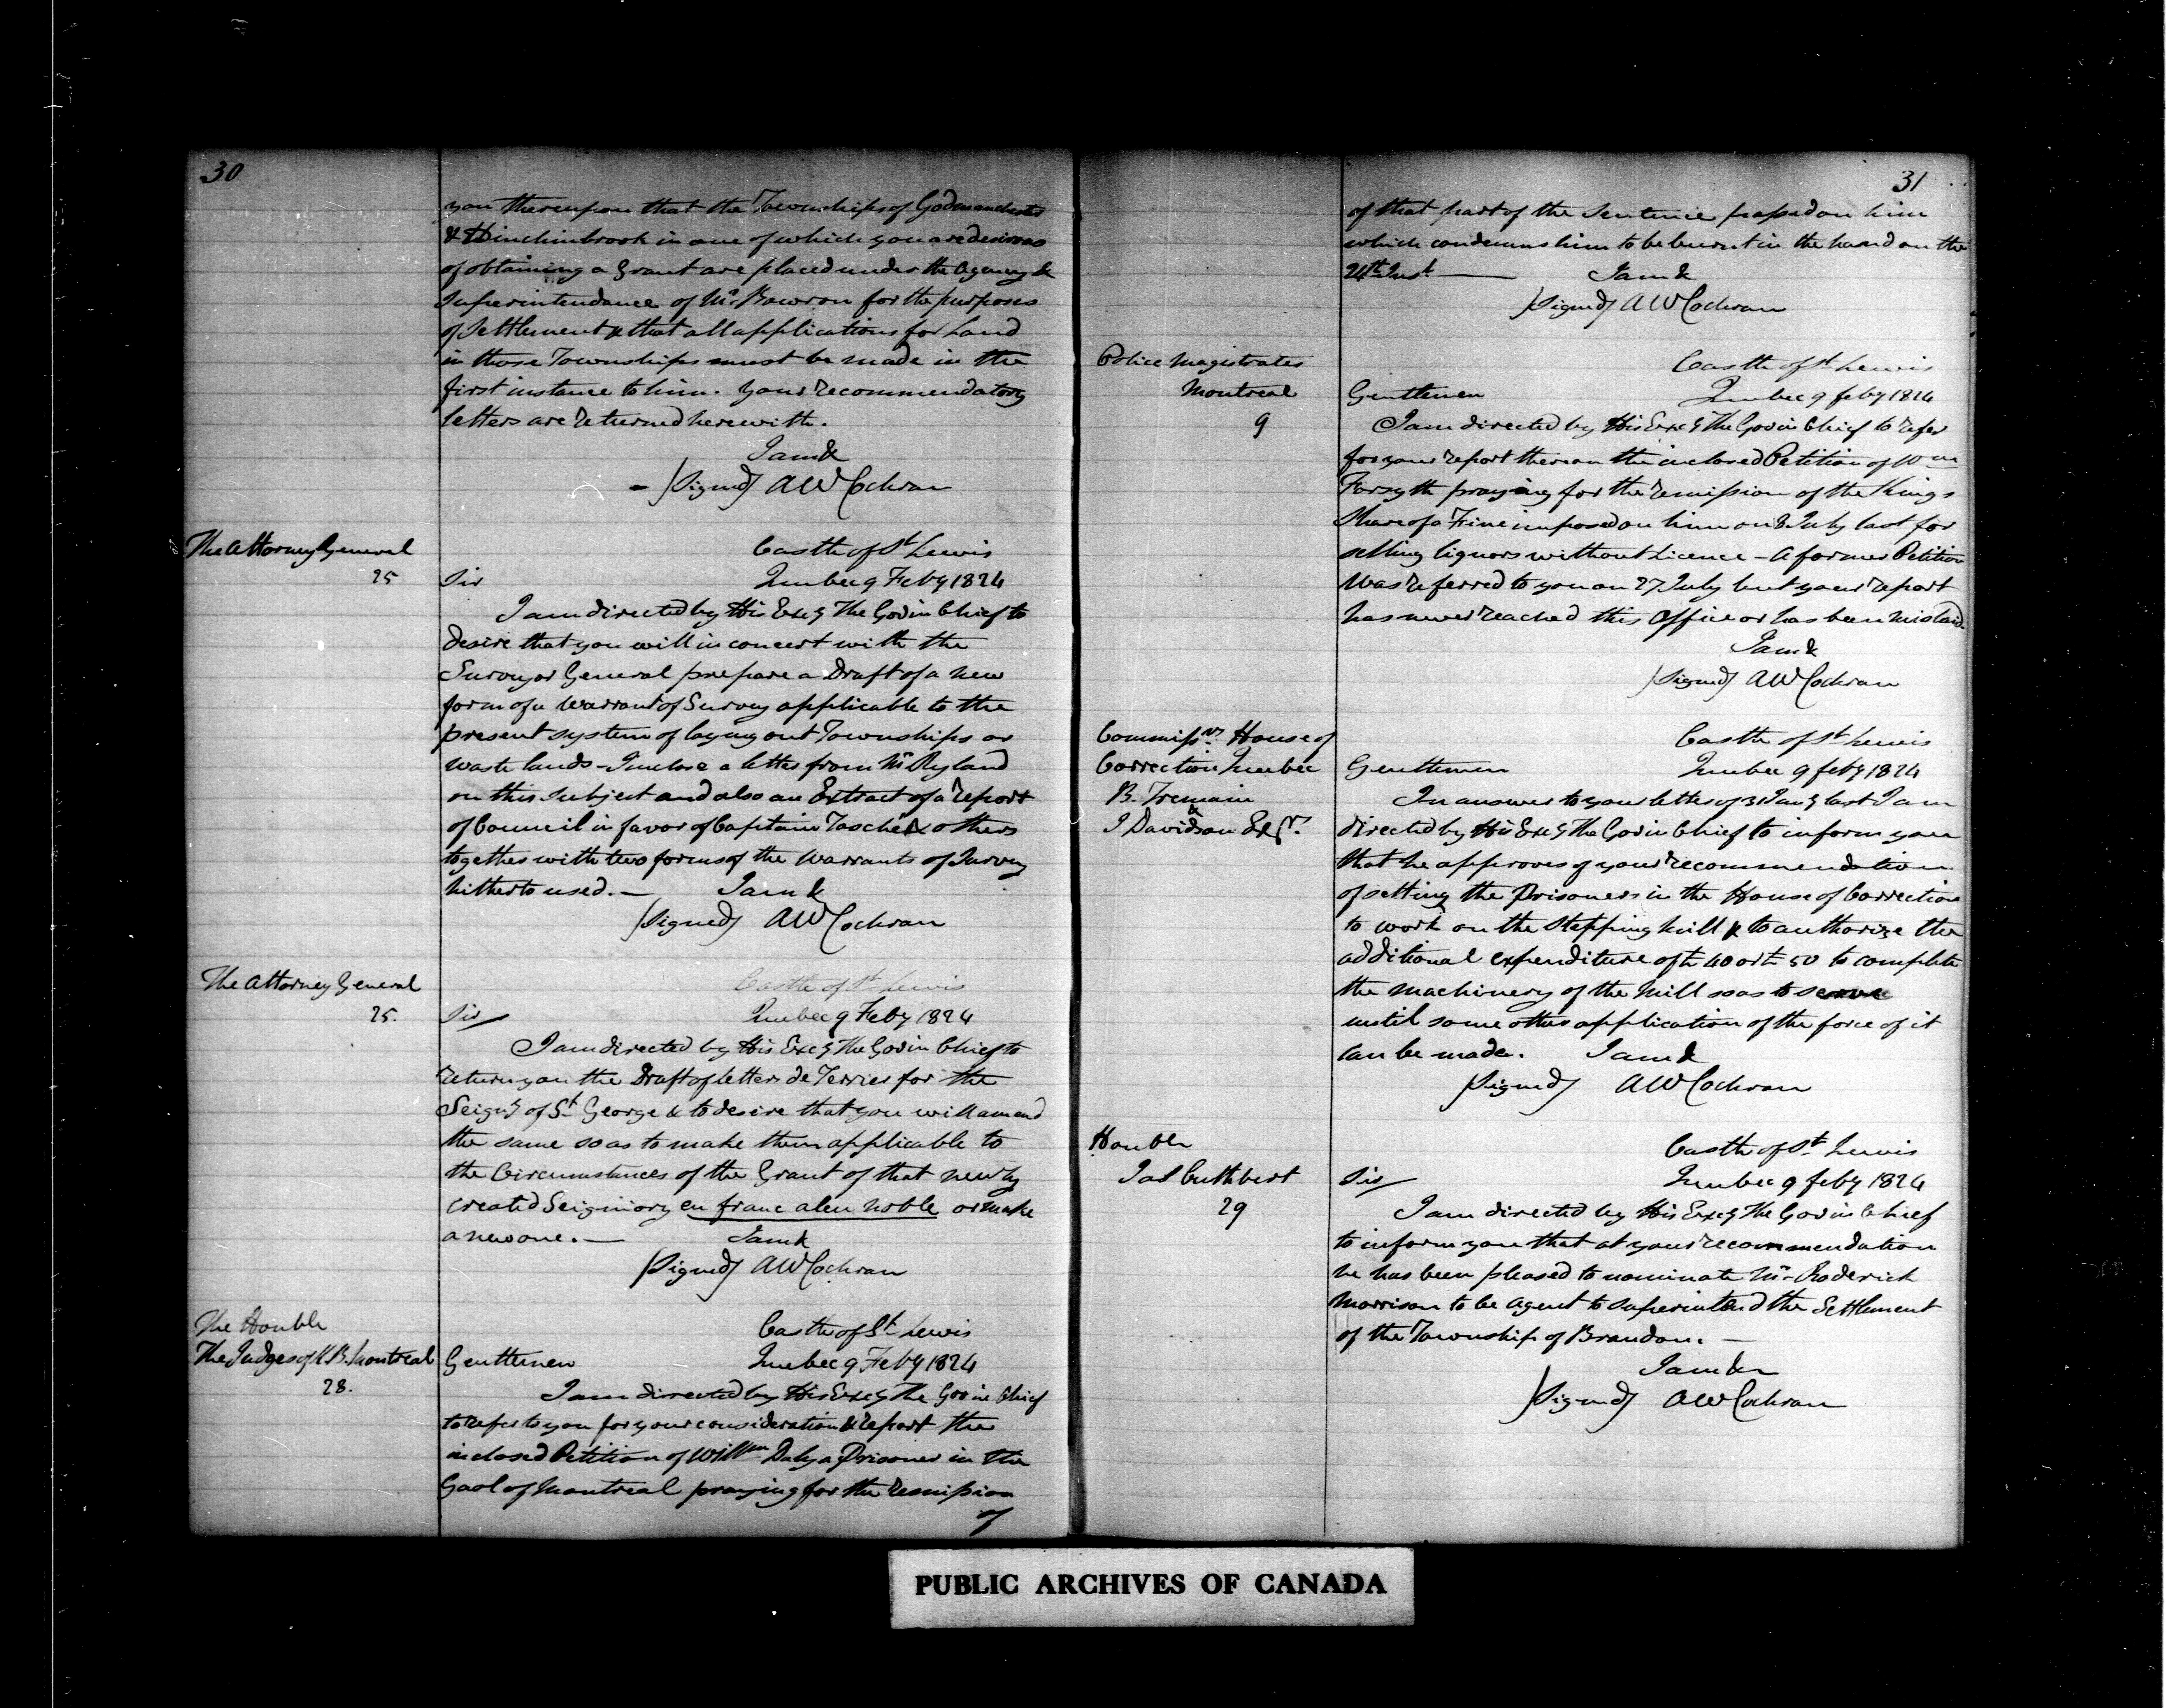 30
you thereupon that the Townships of Godmanchester
& Hinchinbrook in one of which you are desirous
of obtaining a Grant are placed under the Agency &
Superintendance of Mr. Bowron for the purposes
of Settlement & that all applications for Land
in those Townships must be made in the
first instance to him. Your recommendatory
letters are returned herewith.
I am &
(Signed) AW Cochran
The Attorney General
25
Castle of St Lewis
Sir Quebec 9 Feby 1824
I am directed by His Excy The Gov in Chief to
desire that you will in concert with the
Surveyor General prepare a Draft of a new
form of a Warrant of Survey applicable to the
present system of laying out Townships or
waste lands - I inclose a letter from Mr Ryland
on this Subject and also an Extract of a report
of Council in favor of Captain Taché & others
together with two forms of the Warrants of Survey
hitherto used. — I am &
(Signed) AW Cochran
The Attorney General
25.
Castle of St Lewis
Sir Quebec 9 Feby 1824
I am directed by His Excy The Gov in Chief to
return you the Draft of letters de Terrier for the
Seigy of St George & to desire that you will amend
the same so as to make them applicable to
the Circumstances of the Grant of that newly
created Seigniory en franc aleu noble or make
a new one. — I am &
(Signed) AW Cochran
The Honble
The Judges of K.B. Montreal
28.
Castle of St Lewis
Gentlemen Quebec 9 Feby 1824
I am directed by His Excy The Gov in Chief
to refer to you for your consideration & report the
inclosed Petition of Willm Daly a Prisoner in the
Gaol of Montreal praying for the remission
of
31
of that part of the Sentence passed on him
which condemns him to be burnt in the hand on the
24th Inst — I am &
(Signed) AW Cochran
Police Magistrates
Montreal
9
Castle of St Lewis
Gentlemen Quebec 9 feby 1824
I am directed by His Excy The Gov in Chief to refer
for your report thereon the inclosed Petition of Wm
Forsyth praying for the remission of the Kings
Share of a Fine imposed on him on 8 July last for
selling liquors without Licence - A former Petition
was referred to you on 27 July but your report
has never reached this Office or has been mislaid.
I am &
(Signed) AW Cochran
Commissrs House of
Correction Quebec
B. Tremain
&
J Davidson Esqr.
Castle of St Lewis
Gentlemen Quebec 9 feby 1824
In answer to your letter of 31 Jany last I am
directed by His Excy The Gov in Chief to inform you
that he approves of your recommendation
of setting the Prisoners in the House of Correction
to work on the Stepping Mill & to authorize the
additional expenditure of £40 or £50 to complete
the machinery of the Mill so as to serve
until some other application of the force of it
can be made. I am &
(Signed) AW Cochran
Honble
Jas Cuthbert
29
Castle of St. Lewis
Sir Quebec 9 feby 1824
I am directed by His Excy The Gov in Chief
to inform you that at your recommendation
he has been pleased to nominate Mr. Roderick
Morrison to be Agent to superintend the Settlement
of the Township of Brandon. —
I am &c
(Signed) AW Cochran
PUBLIC ARCHIVES OF CANADA